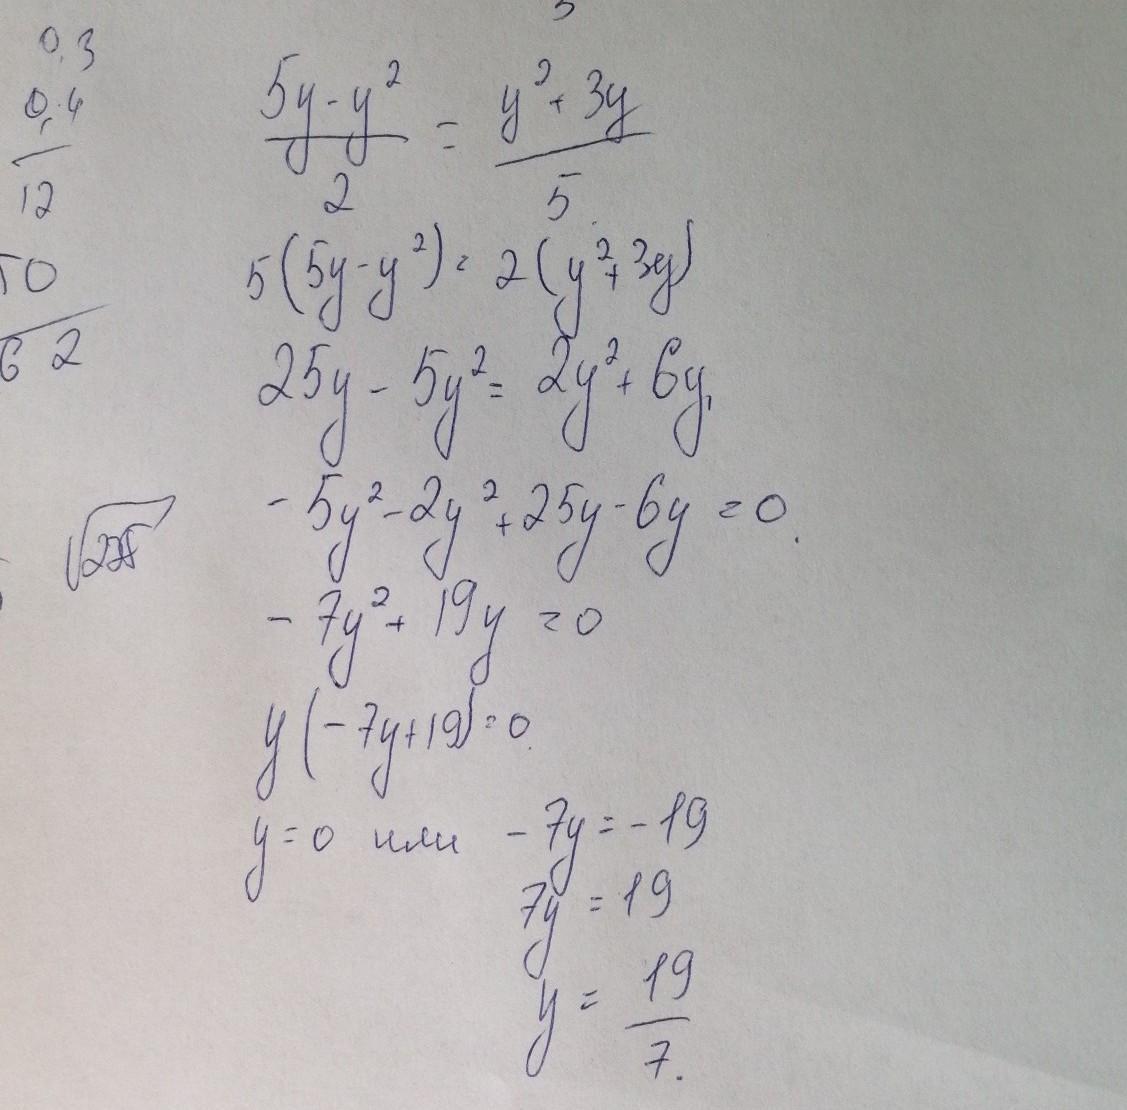 0,3
0,4
12
50
62
√225
(5y - y²)/2 = (y² + 3y)/5
5(5y - y²) = 2(y² + 3y)
25y - 5y² = 2y² + 6y
- 5y² - 2y² + 25y - 6y = 0.
- 7y² + 19y = 0
y(-7y + 19) = 0
y = 0 или -7y = -19
7y = 19
y = 19/7.